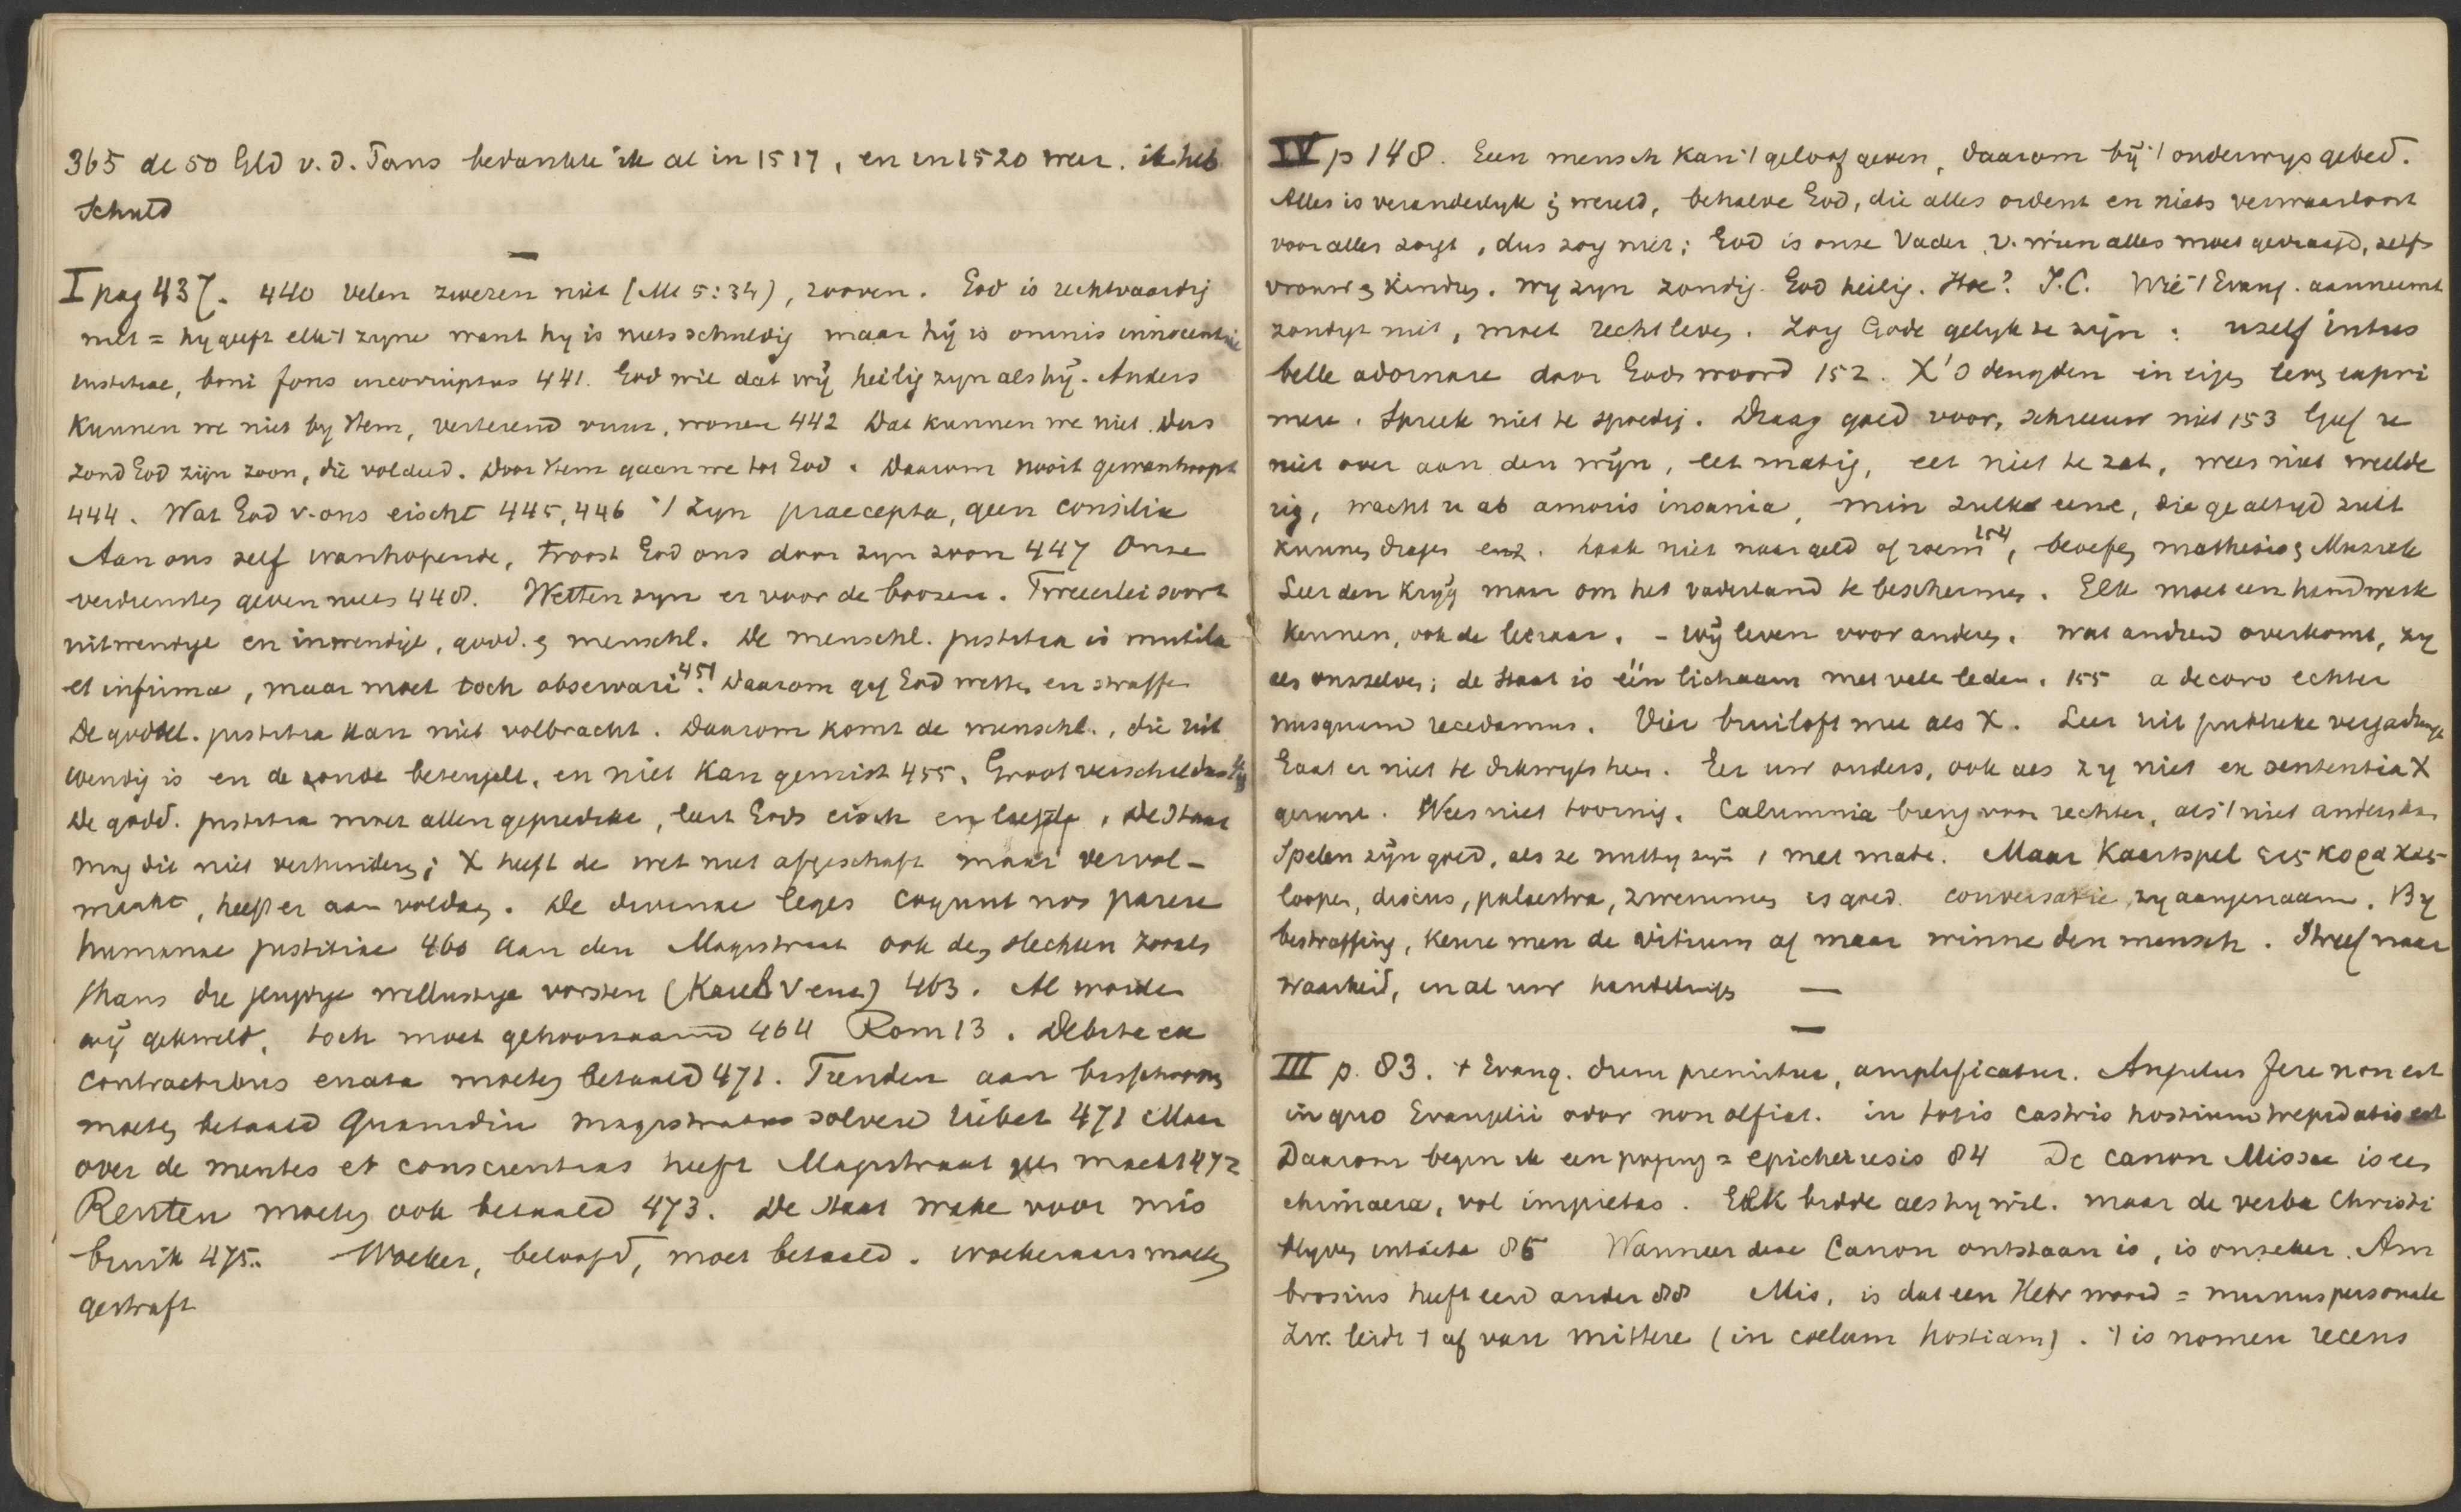 365 de 50 Gld v. d. Paus bedankte ik al in 1517, en in 1520 weer. ik heb
Schuld
—
I pag 437. 440 velen zweren niet (Mt 5:34), rooven. God is rechtvaardig
niet = hy geeft elk 't zyne want hy is niets schuldig maar hij is omnis innocentiae
iustitiae, boni fons incorruptus 441. God wil dat wij heilig zyn als hij. Anders
kunnen we niet by Hem, verterend vuur, wonen 442 Dat kunnen we niet. Dus
zond God zijn zoon, die voldeed. Door Hem gaan we tot God. Daarom nooit gewanhoopt
444. Wat God v. ons eischt 445, 446 't zyn praecepta, geen consilia
Aan ons zelf wanhopende, troost God ons door zyn zoon 447 Onze
verdiensten geven niets 448. Wetten zyn er voor de boozen. Tweeërlei soort
uitwendige en inwendige, godd. en menschl. De menschl. justitia is mutila
et infirma, maar moet toch observari 451. Daarom gaf God wetten en straffen
De goddel. justitia kan niet volbracht. Daarom komt de menschl., die uit
wendig is en de zonde beteugelt, en niet kan gemist 455. Groot verschil dus
De godd. justitia moet allen gepredikt, leert Gods eisch en liefde. De Staat
mag die niet verhinderen; X heeft de wet niet afgeschaft maar vervol-
maakt, heeft er aan voldaan. De divinae leges cogunt nos parere
humanae justitiae 460 Aan den Magistraat ook den slechten zooals
thans die jeugdige wellustige vorsten (Karel V enz) 463. Al worden
wij gekweld, toch moet gehoorzaamd 464 Rom 13. Debita ex
contractibus enata moeten betaald 471. Tienden aan bisschoppen
moeten betaald Quamdiu magistratus solvere iubet 471 Maar
over de mentes et conscientias heeft Magistraat geen macht 472
Renten moeten ook betaald 473. De Staat wake voor mis
bruik 475. Woeker, beloofd, moet betaald. woekeraars moeten
gestraft
IV p 148. Een mensch kan 't geloof geven, daarom bij 't onderwys gebed.
Alles is veranderlyk in wereld, behalve God, die alles ordent en niets verwaarloost
voor alles zorgt, dus zorg niet; God is onze Vader v. wien alles moet gevraagd, zelfs
vrouw en kinders. Wy zyn zondig. God heilig. Hoe? J.C. Wie 't Evang. aanneemt
zondigt niet, moet recht leven. Zorg Gode gelyk te zijn: uzelf intus
belle adornare door Gods woord 152. X's deugden in eigen leven expri
mere. Spreek niet te spoedig. Draag goed voor, schreeuw niet 153 Geef u
niet over aan den wijn, eet matig, eet niet te zat, wees niet weelde
rig, wacht u ab amoris insania, min zulk eene, die ge altyd zult
kunnen dragen enz. haak niet naar geld of roem 154, beoefen mathesis en Muziek
Leer den Krijg maar om het vaderland te beschermen. Elk moet een handwerk
kennen, ook de leeraar. - Wij leven voor anderen. Wat andren overkomt, zy
als onszelven; de Staat is één lichaam met vele leden. 155 a decoro echter
nusquam recedamus. Vier bruiloft mee als X. Leer uit publieke vergadering
Gaat er niet te dikwyls heen. Eer uw ouders, ook als zy niet ex sententia X
gerunt. Wees niet toornig. Calumnia breng voor rechter, als 't niet anders kan
Spelen zijn goed, als ze nuttig zijn, met mate. Maar Kaartspel εις κορακας
loopen, discus, palaestra, zwemmen is goed. conversatie zy aangenaam. By
bestraffing, keure men de vitium af maar winne den mensch. Streef naar
waarheid, in al uw handelingen —
—
III p. 83. 't Evang. dum premitur, amplificatur. Angulus fere non est
in quo Evangelii odor non olfiat. in totis castris hostium trepidatio est
Daarom begin ik een poging = epicheresis 84 De canon Missae is een
chimaera, vol impietas. Elk bidde als hy wil. maar de verba Christi
blyven intacta 86 Wanneer deze Canon ontstaan is, is onzeker. Am
brosius heeft een ander 88 Mis, is dat een Hebr woord = munus personale
Zw. leidt 't af van mittere (in coelum hostiam). 't is nomen recens